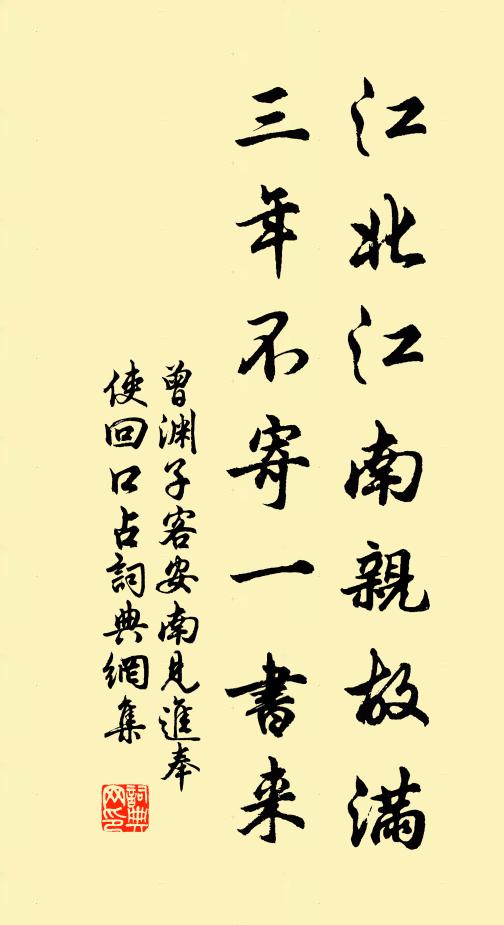 江北江南親故滿
三年不寄一書来
曾渊子客安南見進奉
使回口占詞典網集
詞典网印